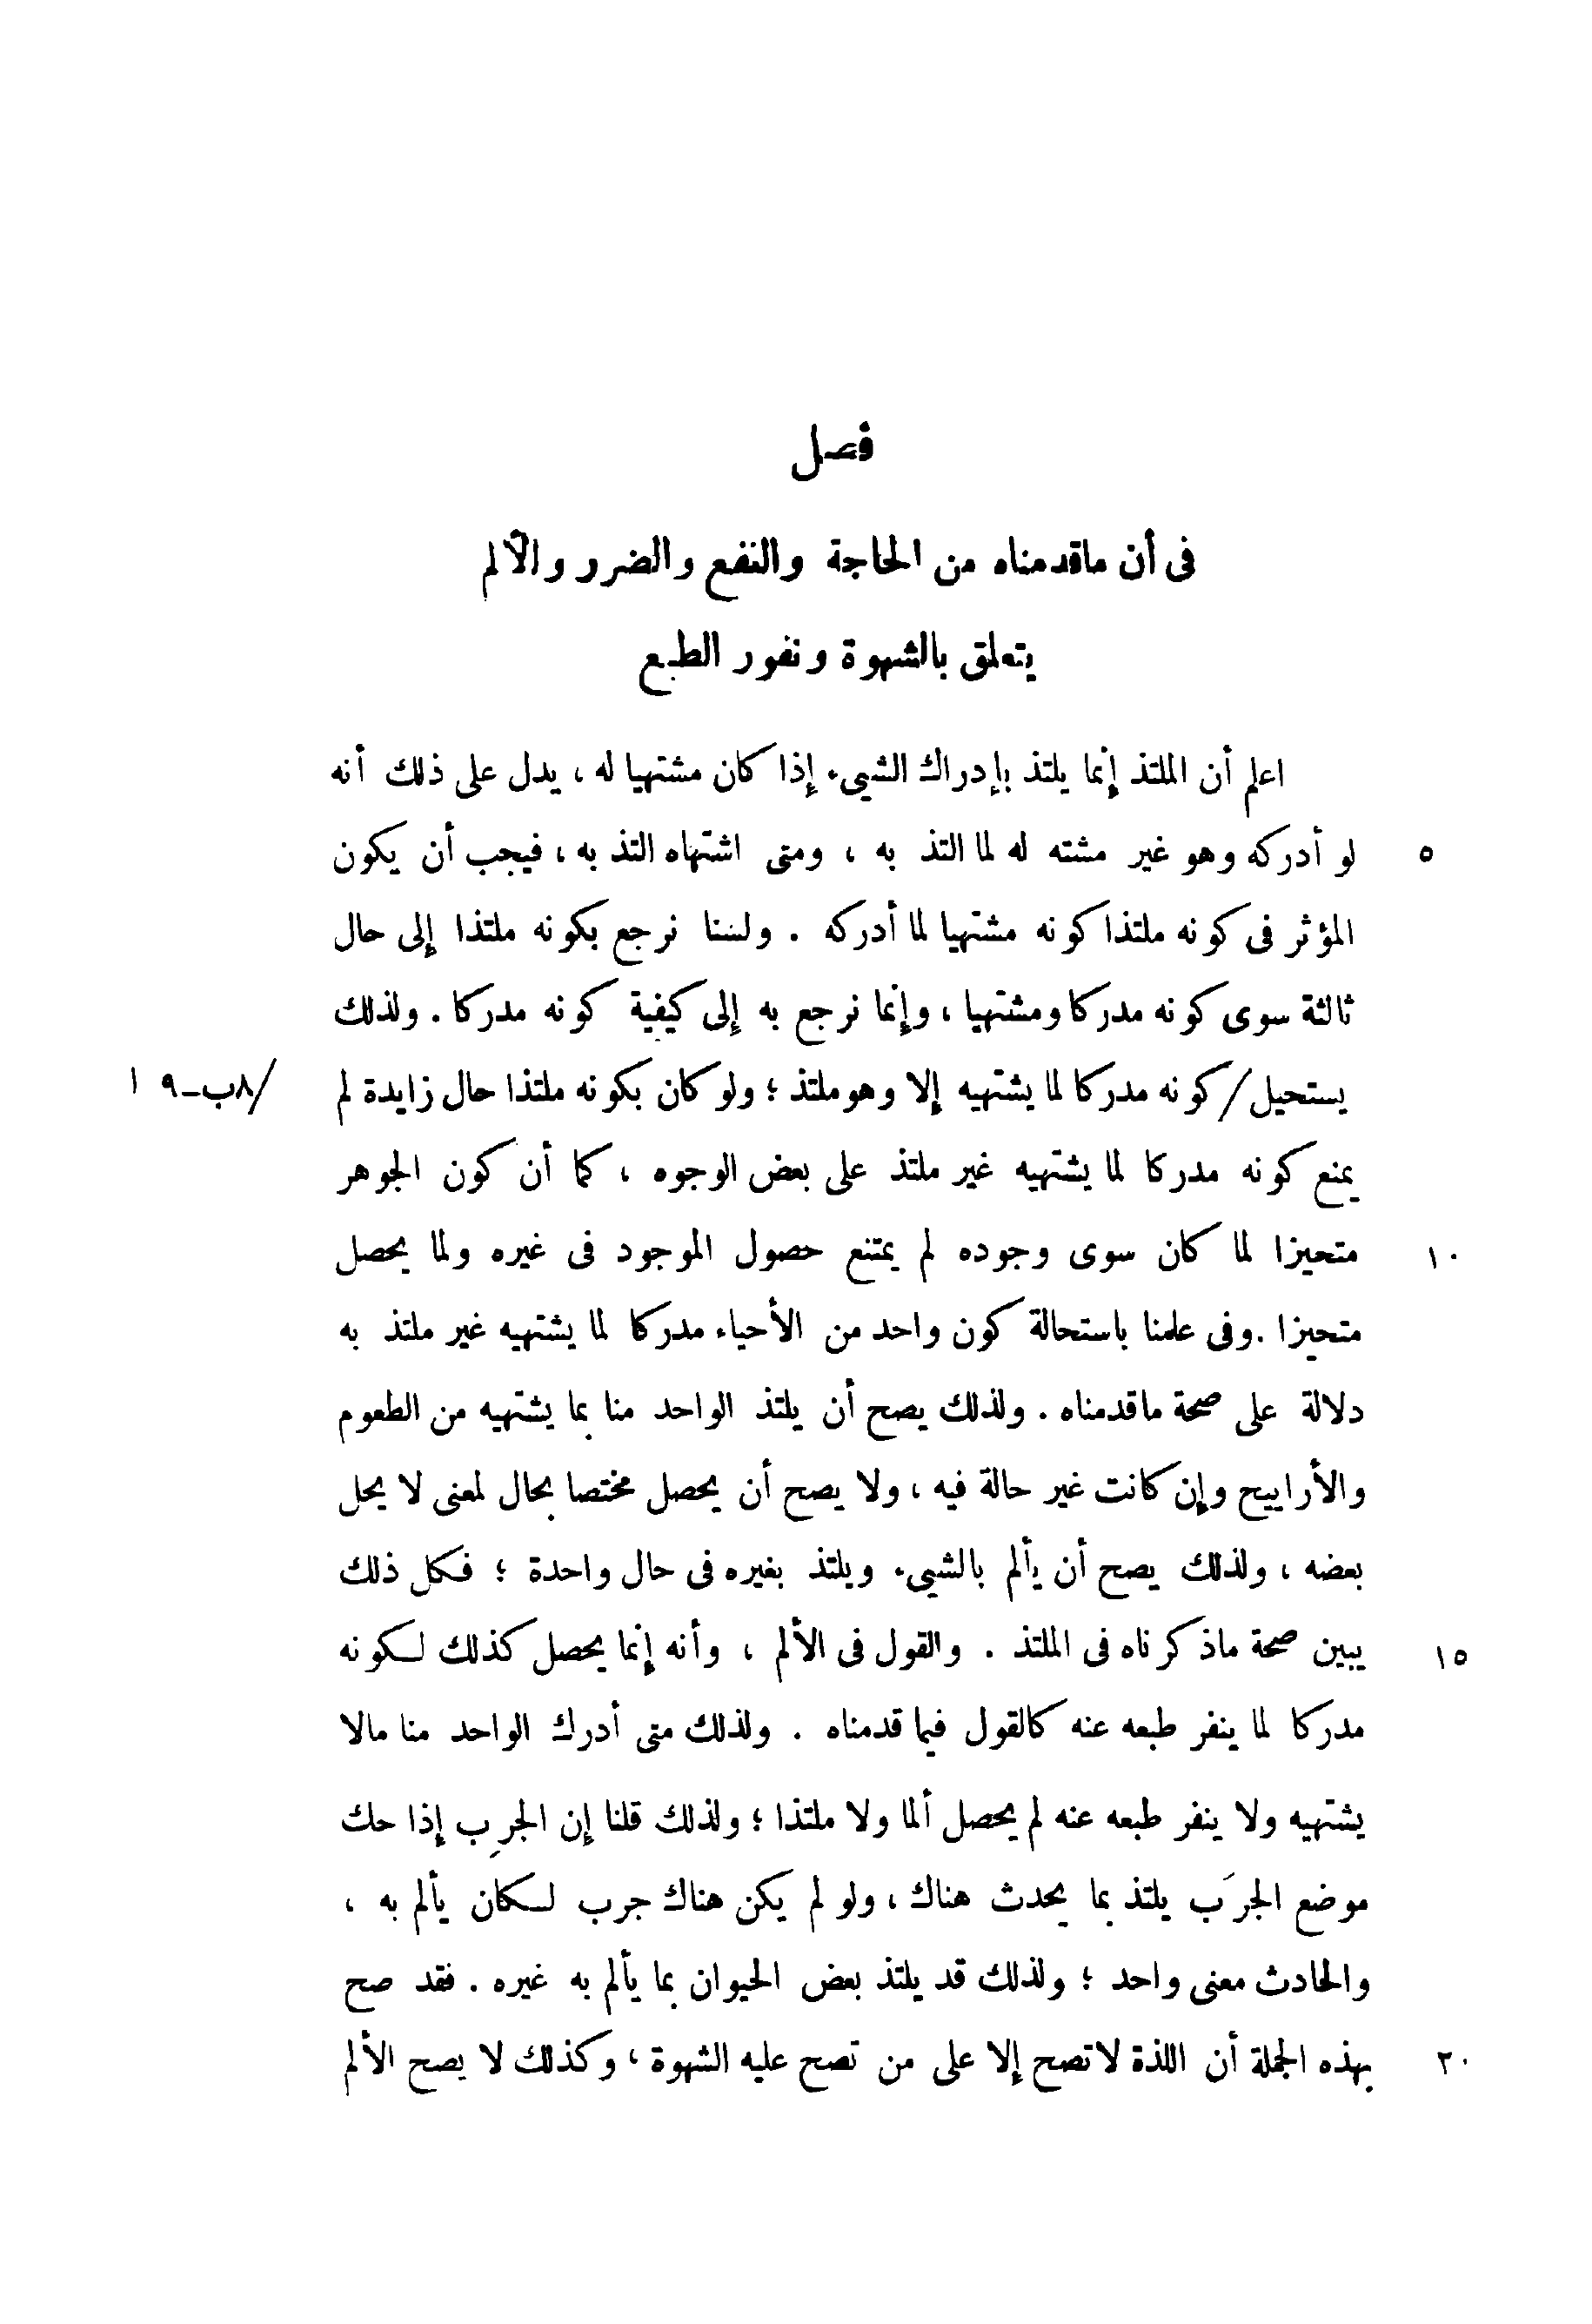 فصل
فى أن ماقدمناه من الحاجة والنفع والضرر والآلم
يتعلق بالشهوة ونفور الطبع
اعلم أن الملتذ إنما يلتذ بإدراك الشيء إذا كان مشتهيا له ، يدل على ذلك أنه
لو أدركه وهو غير مشته له لما التذ به ، ومتى اشتهاه التذ به ، فيجب أن يكون ٥
المؤثر فى كونه ملتذا كونه مشتهيا لما أدركه . ولسنا نرجع بكونه ملتذا إلى حال
ثالثة سوى كونه مدركا ومشتهيا ، وإنما نرجع به إلى كيفية كونه مدركا . ولذلك
يستحيل/ كونه مدركا لما يشتهيه إلا وهو ملتذ ؛ ولو كان بكونه ملتذا حال زايدة لم /٨ب-٩ ا
يمنع كونه مدركا لما يشتهيه غير ملتذ على بعض الوجوه ، كما أن كون الجوهر
متحيزا لما كان سوى وجوده لم يمتنع حصول الموجود فى غيره ولما يحصل ١٠
متحيزا . وفى علمنا باستحالة كون واحد من الأحياء مدركا لما يشتهيه غير ملتذ به
دلالة على صحة ماقدمناه . ولذلك يصح أن يلتذ الواحد منا بما يشتهيه من الطعوم
والأراييح وإن كانت غير حالة فيه ، ولا يصح أن يحصل مختصا بحال لمعنى لا يحل
بعضه ، ولذلك يصح أن يألم بالشيء ويلتذ بغيره فى حال واحدة ؛ فكل ذلك
يبين صحة ماذكرناه فى الملتذ . والقول فى الألم ، وأنه إنما يحصل كذلك لكونه ١٥
مدركا لما ينفر طبعه عنه كالقول فيما قدمناه . ولذلك متى أدرك الواحد منا مالا
يشتهيه ولا ينفر طبعه عنه لم يحصل ألما ولا ملتذا ؛ ولذلك قلنا إن الجرِب إذا حك
موضع الجرَب يلتذ بما يحدث هناك ، ولو لم يكن هناك جرب لكان يألم به ،
والحادث معنى واحد ؛ ولذلك قد يلتذ بعض الحيوان بما يألم به غيره . فقد صح
بهذه الجملة أن اللذة لاتصح إلا على من تصح عليه الشهوة ، وكذلك لا يصح الألم ٢٠